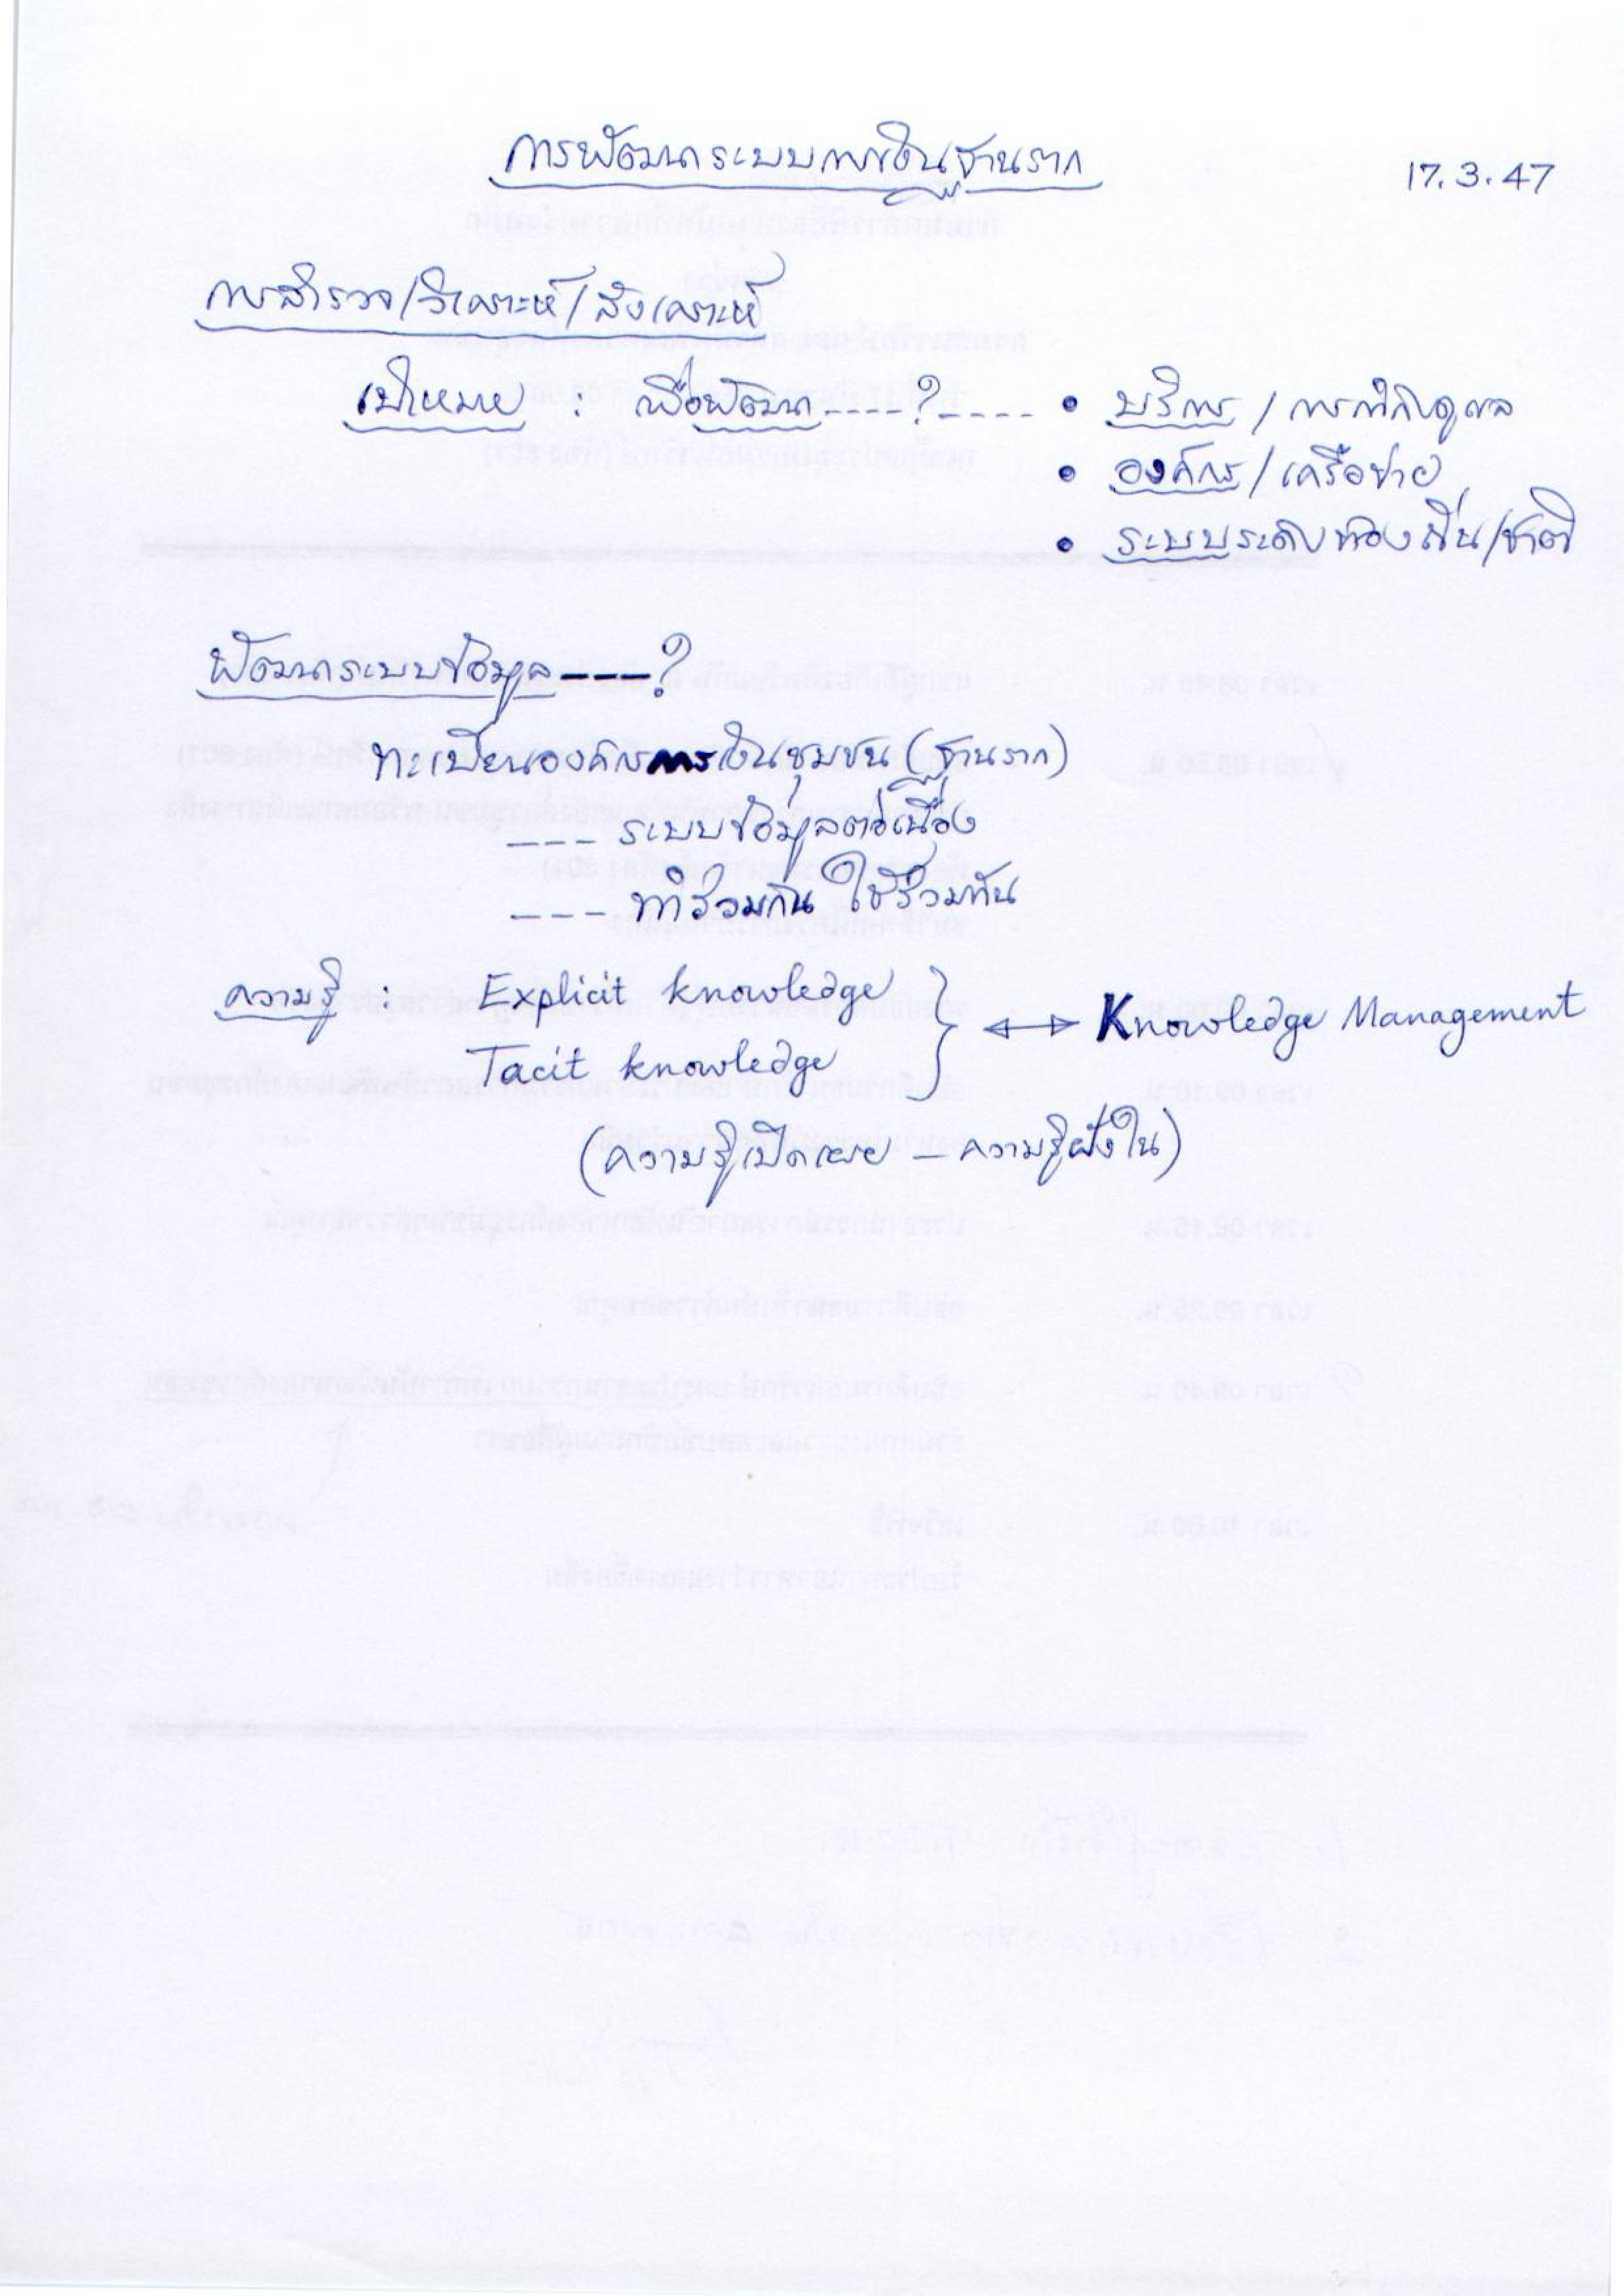 การพัฒนาระบบการเงินฐานราก
17.3.47
การสำรวจ/วิเคราะห์/สังเคราะห์
เป้าหมาย : เพื่อพัฒนา----?---- • บริการ / การกำกับดูแล
• องค์กร / เครือข่าย
• ระบบระดับท้องถิ่น/ชาติ
พัฒนาระบบข้อมูล---?
ทะเบียนองค์กรการเงินชุมชน (ฐานราก)
--- ระบบข้อมูลต่อเนื่อง
--- ทำร่วมกัน ใช้ร่วมกัน
ความรู้ : Explicit knowledge
Tacit knowledge } ↔ Knowledge Management
(ความรู้เปิดเผย – ความรู้ฝังใน)